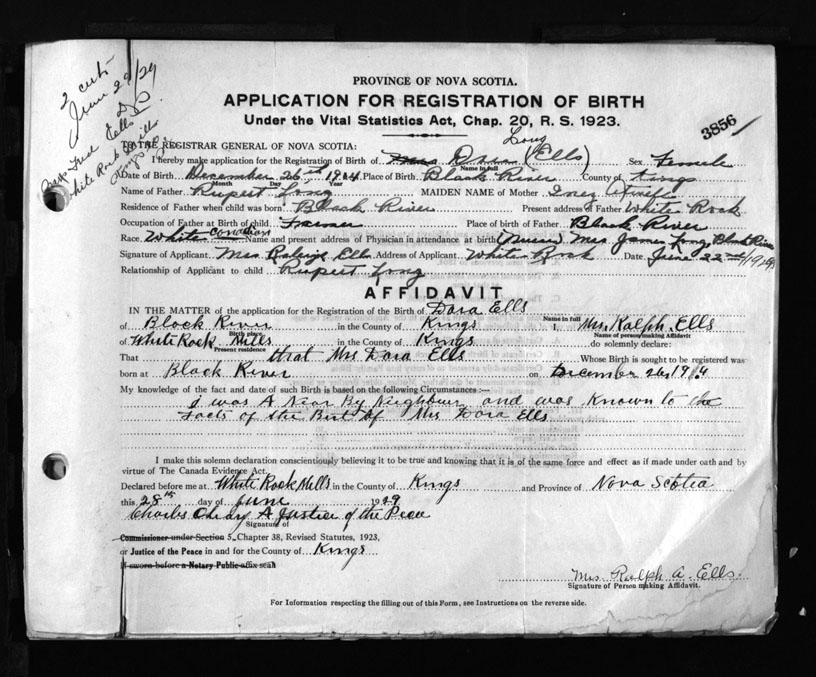 2 certs
June 29/29
PROVINCE OF NOVA SCOTIA.
APPLICATION FOR REGISTRATION OF BIRTH
Under the Vital Statistics Act, Chap. 20, R. S. 1923.
3856
Ells
White Rock Mills
Kings
TO THE REGISTRAR GENERAL OF NOVA SCOTIA:
Long
I hereby make application for the Registration of Birth of Mrs Dora (Ells) Sex Female
Name in full
Date of Birth December 26th 1914 Place of Birth Black River County of Kings
Month Day Year
Name of Father Rupert Long MAIDEN NAME of Mother Inez
Residence of Father when child was born Black River Present address of Father White Rock
Occupation of Father at Birth of child Farmer Place of birth of Father Black River
Race White Canadian Name and present address of Physician in attendance at birth (Nurse) Mrs James Long, Black River
Signature of Applicant Mrs Ells Address of Applicant White Rock Date June 22nd/1929
Relationship of Applicant to child Rupert Long
AFFIDAVIT
IN THE MATTER of the application for the Registration of the Birth of Dora Ells
Name in full
of Black River in the County of Kings I, Mrs Ralph Ells
Birth place Name of person making Affidavit
of White Rock Mills in the County of Kings do solemnly declare:
Present residence
That that Mrs Dora Ells Whose Birth is sought to be registered was
born at Black River on December 26, 1914
My knowledge of the fact and date of such Birth is based on the following Circumstances :—
I was A Near By Neighbour and was known to the
facts of the Birt of Mrs Dora Ells
I make this solemn declaration conscientiously believing it to be true and knowing that it is of the same force and effect as if made under oath and by
virtue of The Canada Evidence Act.
Declared before me at White Rock Mills in the County of Kings and Province of Nova Scotia
this 28th day of June 1929
Charles A Justice of the Peace
Signature of
Commissioner under Section 5, Chapter 38, Revised Statutes, 1923,
or Justice of the Peace in and for the County of Kings
If sworn before a Notary Public affix seal
Mrs Ralph A. Ells
Signature of Person making Affidavit.
For Information respecting the filling out of this Form, see Instructions on the reverse side.